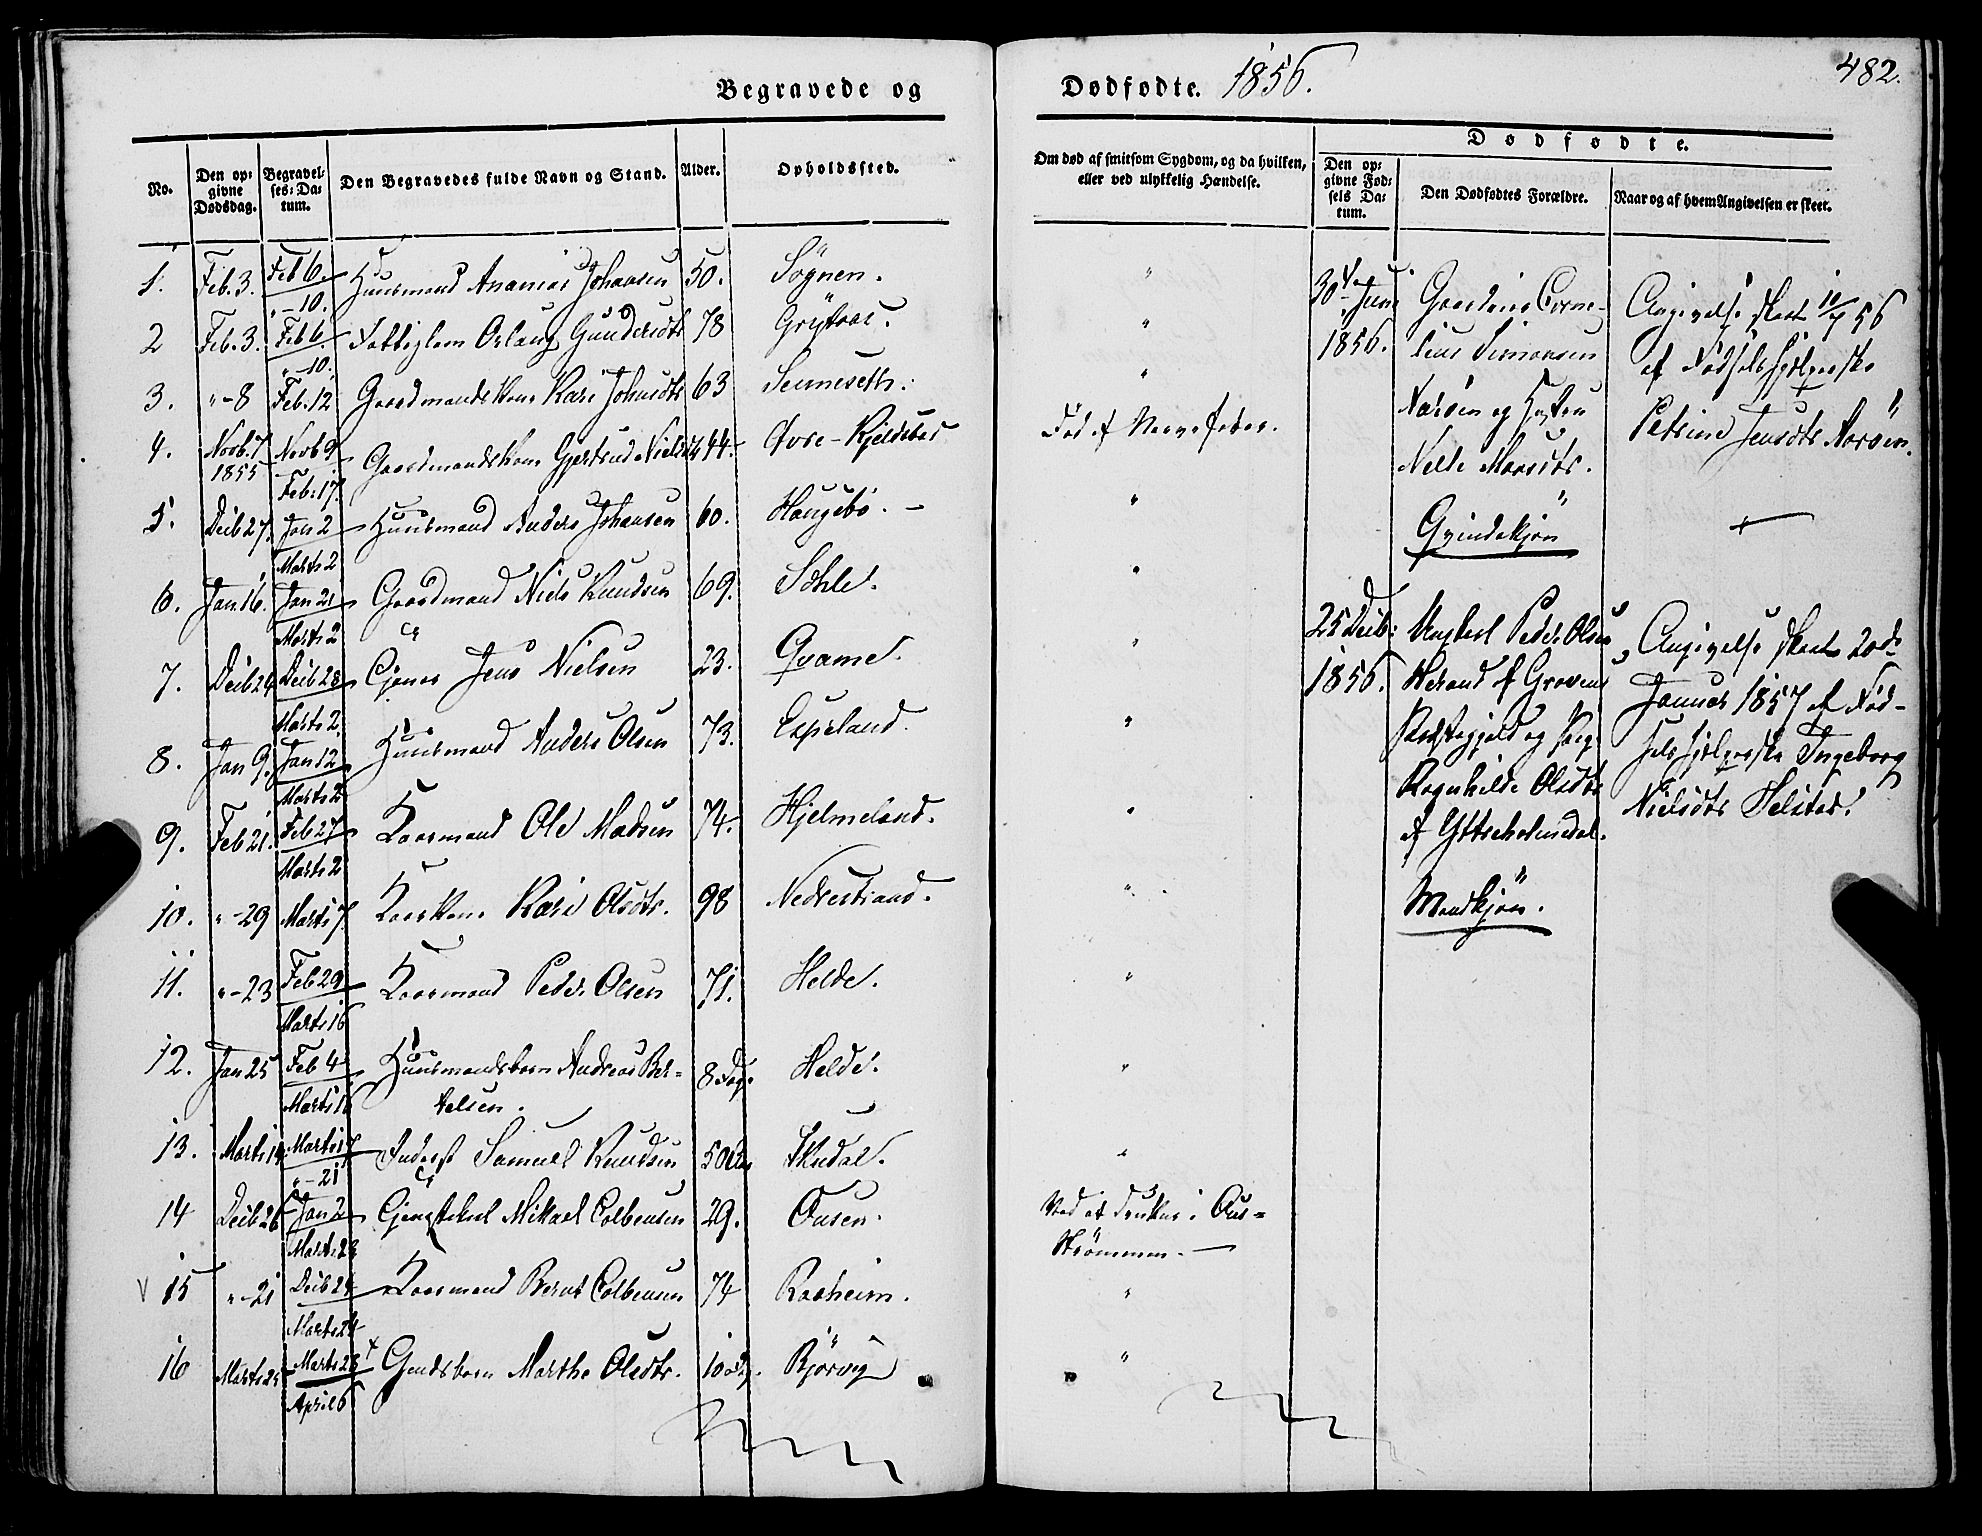 Begravede og
No.
Den op-
givne
Dødsdag.
Begravel-
ses-Da-
tum.
Den Begravedes fulde Navn og Stand.
Alder.
Opholdssted.
1. Feb. 3. Feb 6. Huusmand Ananias Johansen 50. Søgnen.
" – 10.
2 Feb. 3. Feb 6. Fattiglem Aslaug Gundersdtr 78 Grytaas.
" – 10.
3. " – 8 Feb. 12 Gaardmandskone Kari Johnsdtr 63
4. Novb. 7 Novb 9 Gaardmandskone Gjertrud Nielsd 44. Øvre-Kjeldsbot
1855 Feb. 17.
5. Decb 27. Jan 2 Huusmand Anders Johansen 60. Haugebø. –
Marts 2
6. Jan 16. Jan 21 Gaardmand Niels Knudsen 69. Sohle.
Marts 2
7. Decb 24 Decb 28 Jens Nielsen 23. Qvame.
Marts 2.
8. Jan 9. Jan 12 Huusmand Anders Olsen 73. Espeland.
Marts 2
9. Feb 21. Feb 27 Kaarmand Ole Madsen 74. Hjelmeland.
Marts 2
10. " – 29 Marts 7 Kaarkone Kari Olsdtr. 98 Nedrestrand.
11. " – 23 Feb 29 Kaarmand Peder Olsen 71. Helde.
Marts 16
12. Jan 25 Feb 4 Huusmandsbarn Andreas Ber- 8 Dag. Helde.
Marts 16 telsen.
13. Marts 14 Marts 17 Inderst Samuel Knudsen 50 Aar
" – 21
14 Decb 26 Jan 2 Mikael Colbensen 29. Ousen.
Marts 23
V 15 " – 21 Decb 24 Kaarmand Bernt Colbensen 74 Raaheim.
Marts 24
16 Marts 25 Marts 28 Marthe Olsdtr. Bjørvig
April 6
Dødfødte. 1856. 482.
Om død af smitsom Sygdom, og da hvilken,
eller ved ulykkelig Hændelse.
Dødfødte.
Den op-
givne Fød-
sels Da-
tum.
Den Dødfødtes Forældre.
Naar og af hvem Angivelsen er skeet.
"
"
"
Død af Nervefeber.
"
"
"
"
"
"
"
"
"
Ved at drukne i Ous-
strømmen. –
"
"
30te Juni
1856.
Corne-
lius Simonsen
Aarøen og Hustru
Nille Monsdtr.
Qvindekjøn
Angivelse skeet 10/7 56
af Fødselshjelperske
Petrine Jensdtr Aarøen.
25 Decb:
1856.
Ungkarl Peder Olsen
Herand af Gravens
Præstegjeld og Pige
Ragnhilde Olsdtr
af Yttreholmedal.
Mandkjøn.
Angivelse skeet 20de
Januar 1857 af Fød-
selshjelperske Ingeborg
Nielsdtr Helstad.